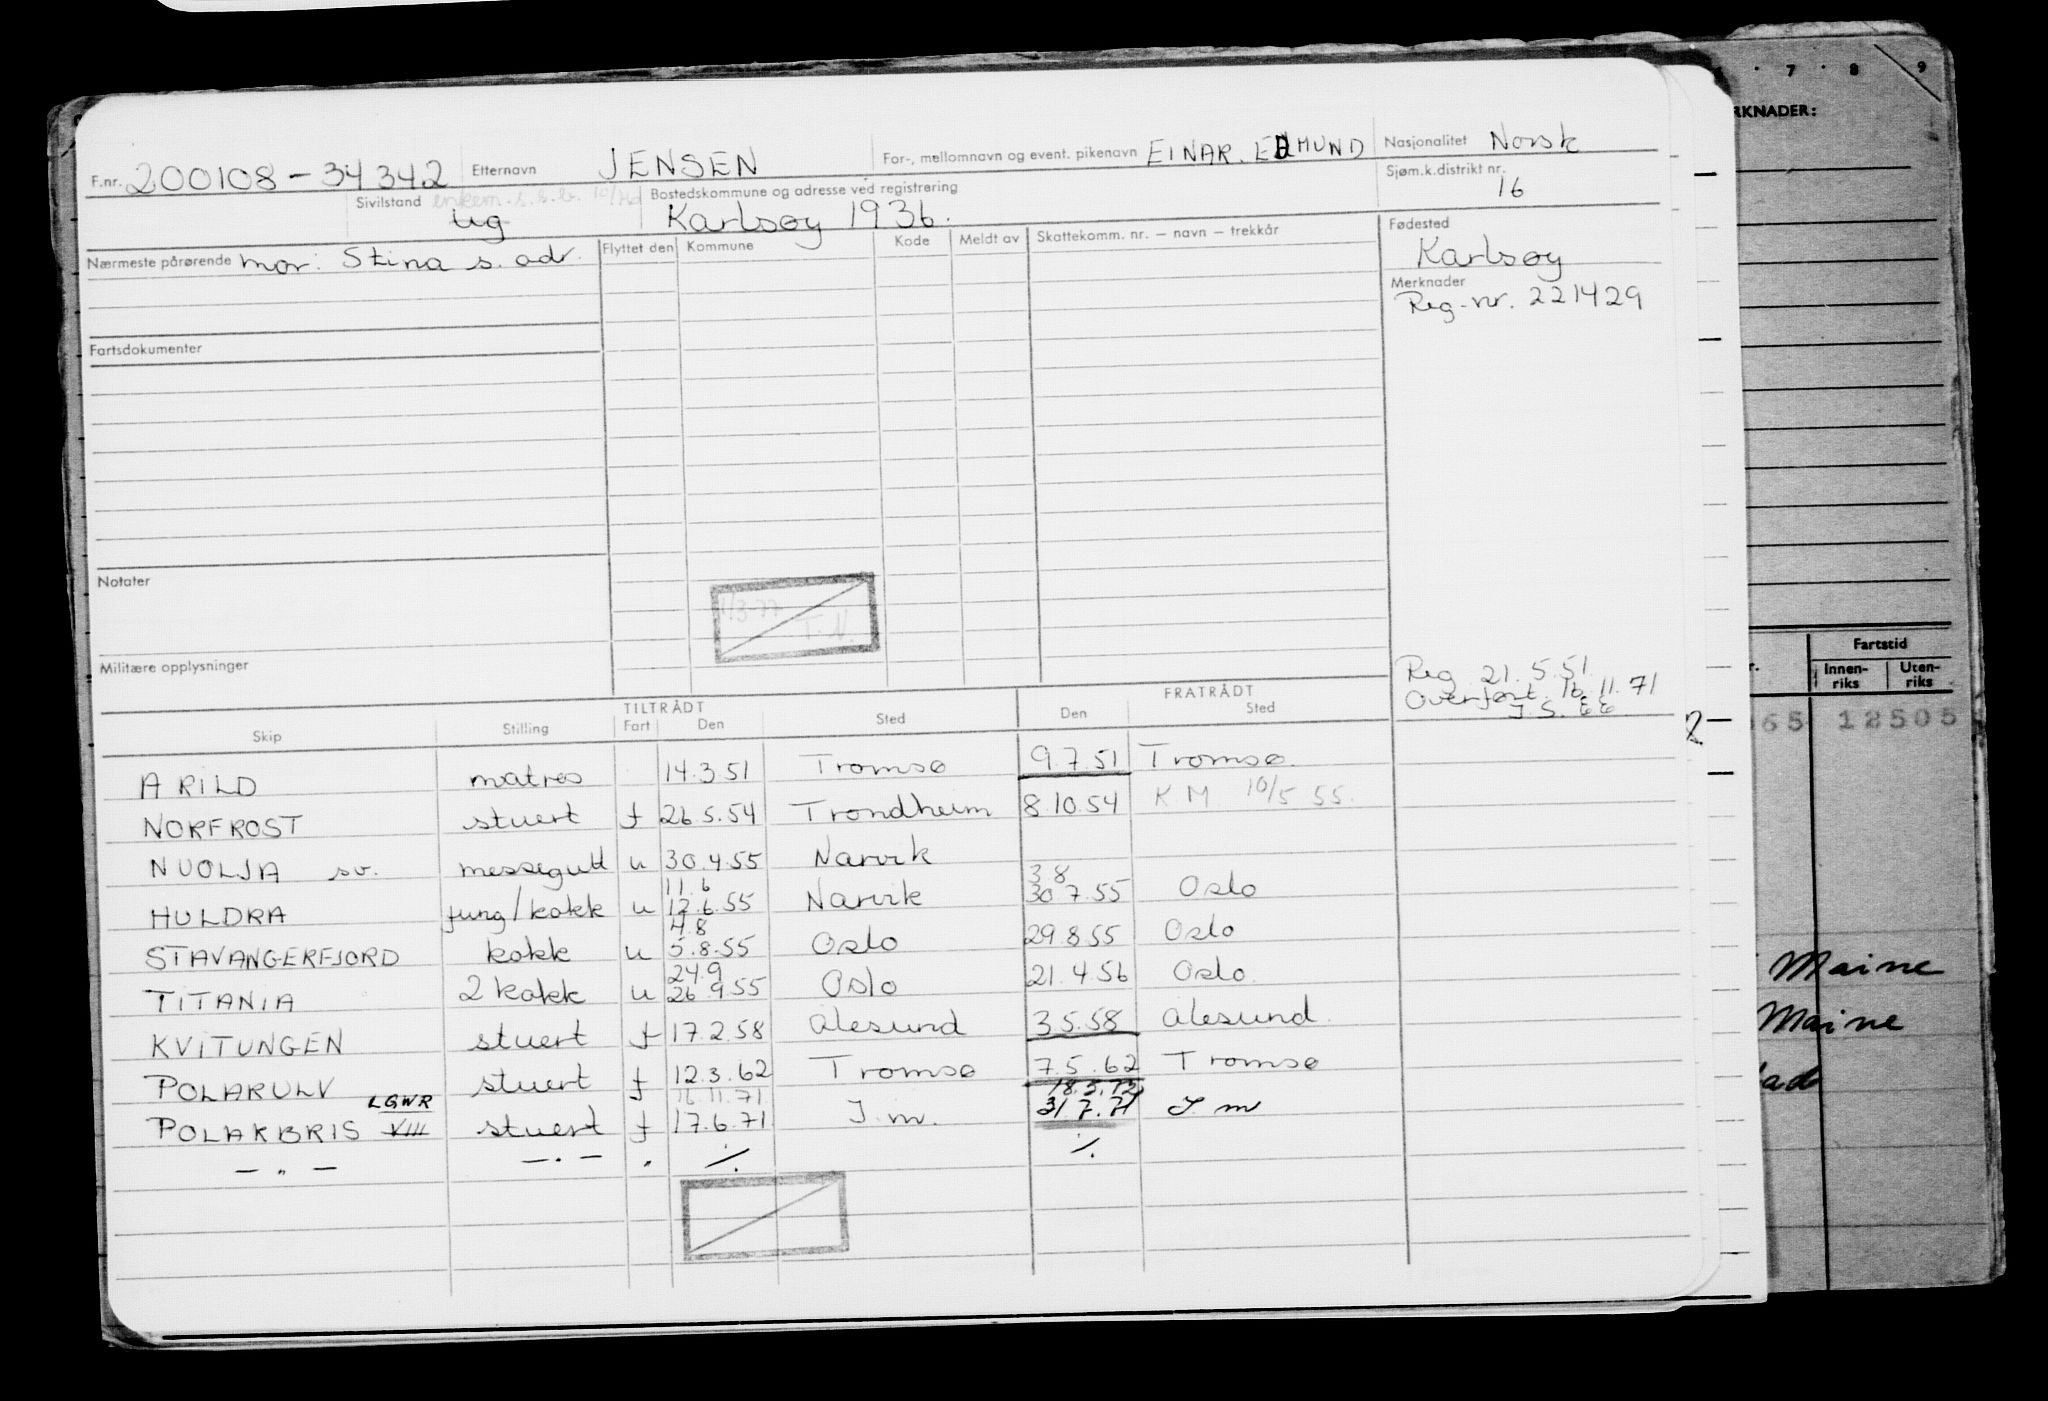 F.nr. 200108-34342 Etternavn JENSEN For-, mellomnavn og event. pikenavn EINAR. EDMUND Nasjonalitet Norsk
Sivilstand enkem. s.s.b. ug Bostedskommune og adresse ved registrering Karlsøy 1936. Sjøm.k.distrikt nr. 16
Nærmeste pårørende mor: Stina s. adr. Flyttet den Kommune Kode Meldt av Skattekomm. nr. – navn – trekkår Fødested Karlsøy
Merknader
Reg-nr. 221429
Fartsdokumenter
Notater
1/3-77
T.N.
Militære opplysninger
Reg 21.5.51
Overført 16.11.71
TILTRÅDT FRATRÅDT
Skip Stilling Fart Den Sted Den Sted
ARILD matros 14.3.51 Tromsø 9.7.51 Tromsø.
NORFROST stuert f 26.5.54 Trondheim 8.10.54 K M. 10/5 55.
NUOLJA sv. messegutt u 30.4.55 Narvik
11.6 3 8
HULDRA jung/kokk u 12.6.55 Narvik 30 7.55 Oslo
4.8
STAVANGERFJORD kokk u 5.8.55 Oslo 29.8.55 Oslo
24.9
TITANIA 2 kokk u 26.9.55 Oslo 21.4.56 Oslo.
KVITUNGEN stuert f 17.2.58 Ålesund 3.5.58 Ålesund.
POLARULV stuert f 12.3.62 Tromsø 7.5.62 Tromsø
LGWR 16.11.71 18.5.72
POLARBRIS VIII stuert f 17.6.71 I.m. 31.7.71 I m
— " — — . — " ./. ./.
7 8 9
RKNADER:
Fartstid
r. Innen-riks Uten-riks
065 12505
2
Maine
Maine